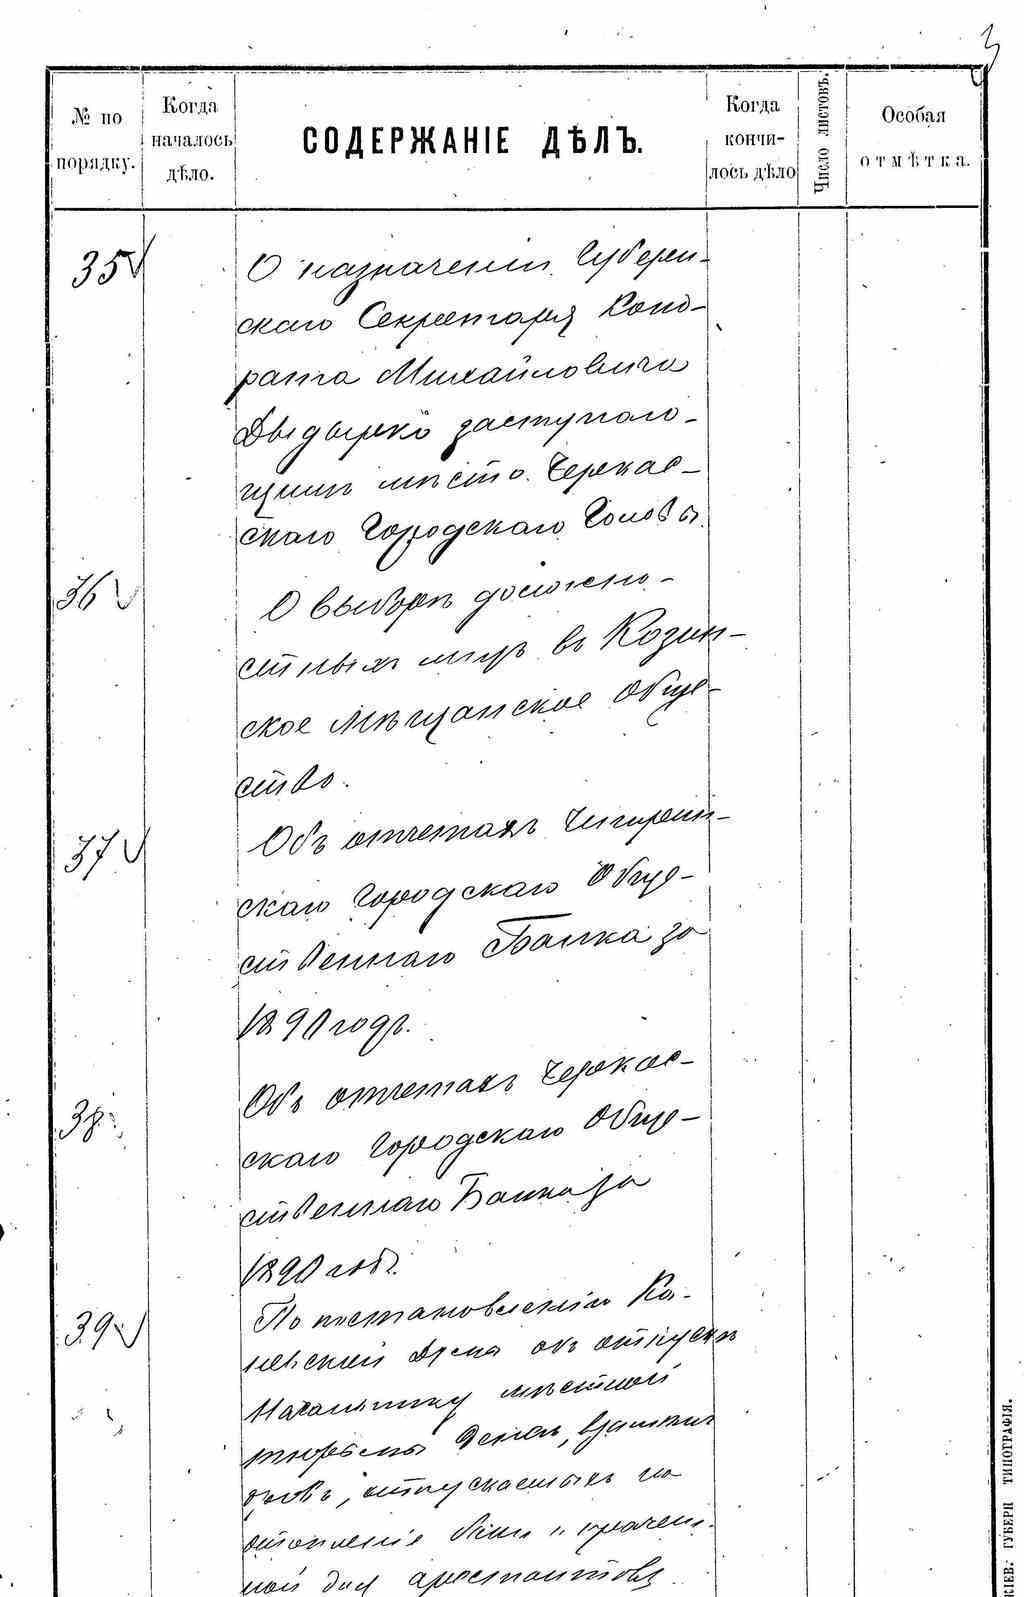 3
№ по порядку.
Когда началось дѣло.
СОДЕРЖАНІЕ ДѢЛЪ.
Когда кончилось дѣло
Число листовъ.
Особая отмѣтка.
35
О назначеніи Губерн-
скаго Секретаря Конд-
рата Михайловича
заступаю-
щимъ мѣсто Черкас-
скаго Городскаго Головы.
36
О выборѣ должно-
стныхъ лицъ въ Козин-
ское мѣщанское Обще-
ство.
37
Объ отчетахъ Чигирин-
скаго Городскаго Обще-
ственнаго Банка за
1890 годъ.
38
Объ отчетахъ Черкас-
скаго Городскаго Обще-
ственнаго Банка за
1890 годъ.
39
По постановленію Ка-
невской Думы объ отпускѣ
Начальнику мѣстной
тюрьмы денегъ, взамѣнъ
дровъ, отпускаемыхъ на
отопленіе бани и прачеш-
ной для арестантовъ
КІЕВ. ГУБЕРН ТИПОГРАФІЯ.